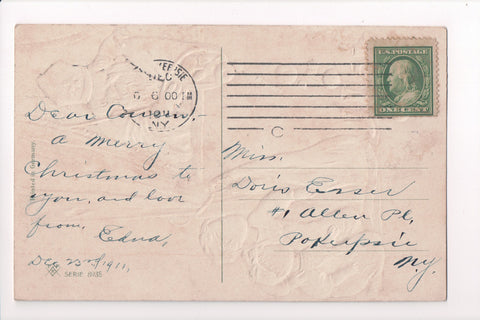 DEC
6 00 PM
N.Y.
U.S. POSTAGE
ONE CENT
C
Dear Cousin,-
a merry
Christmas to
you, and love
from,
Edna,
Dec. 23rd/1911,
Printed in Germany.
SERIE
Miss.
Doris Esser
#1 Allen Pl,
Pokepsie
N.Y.